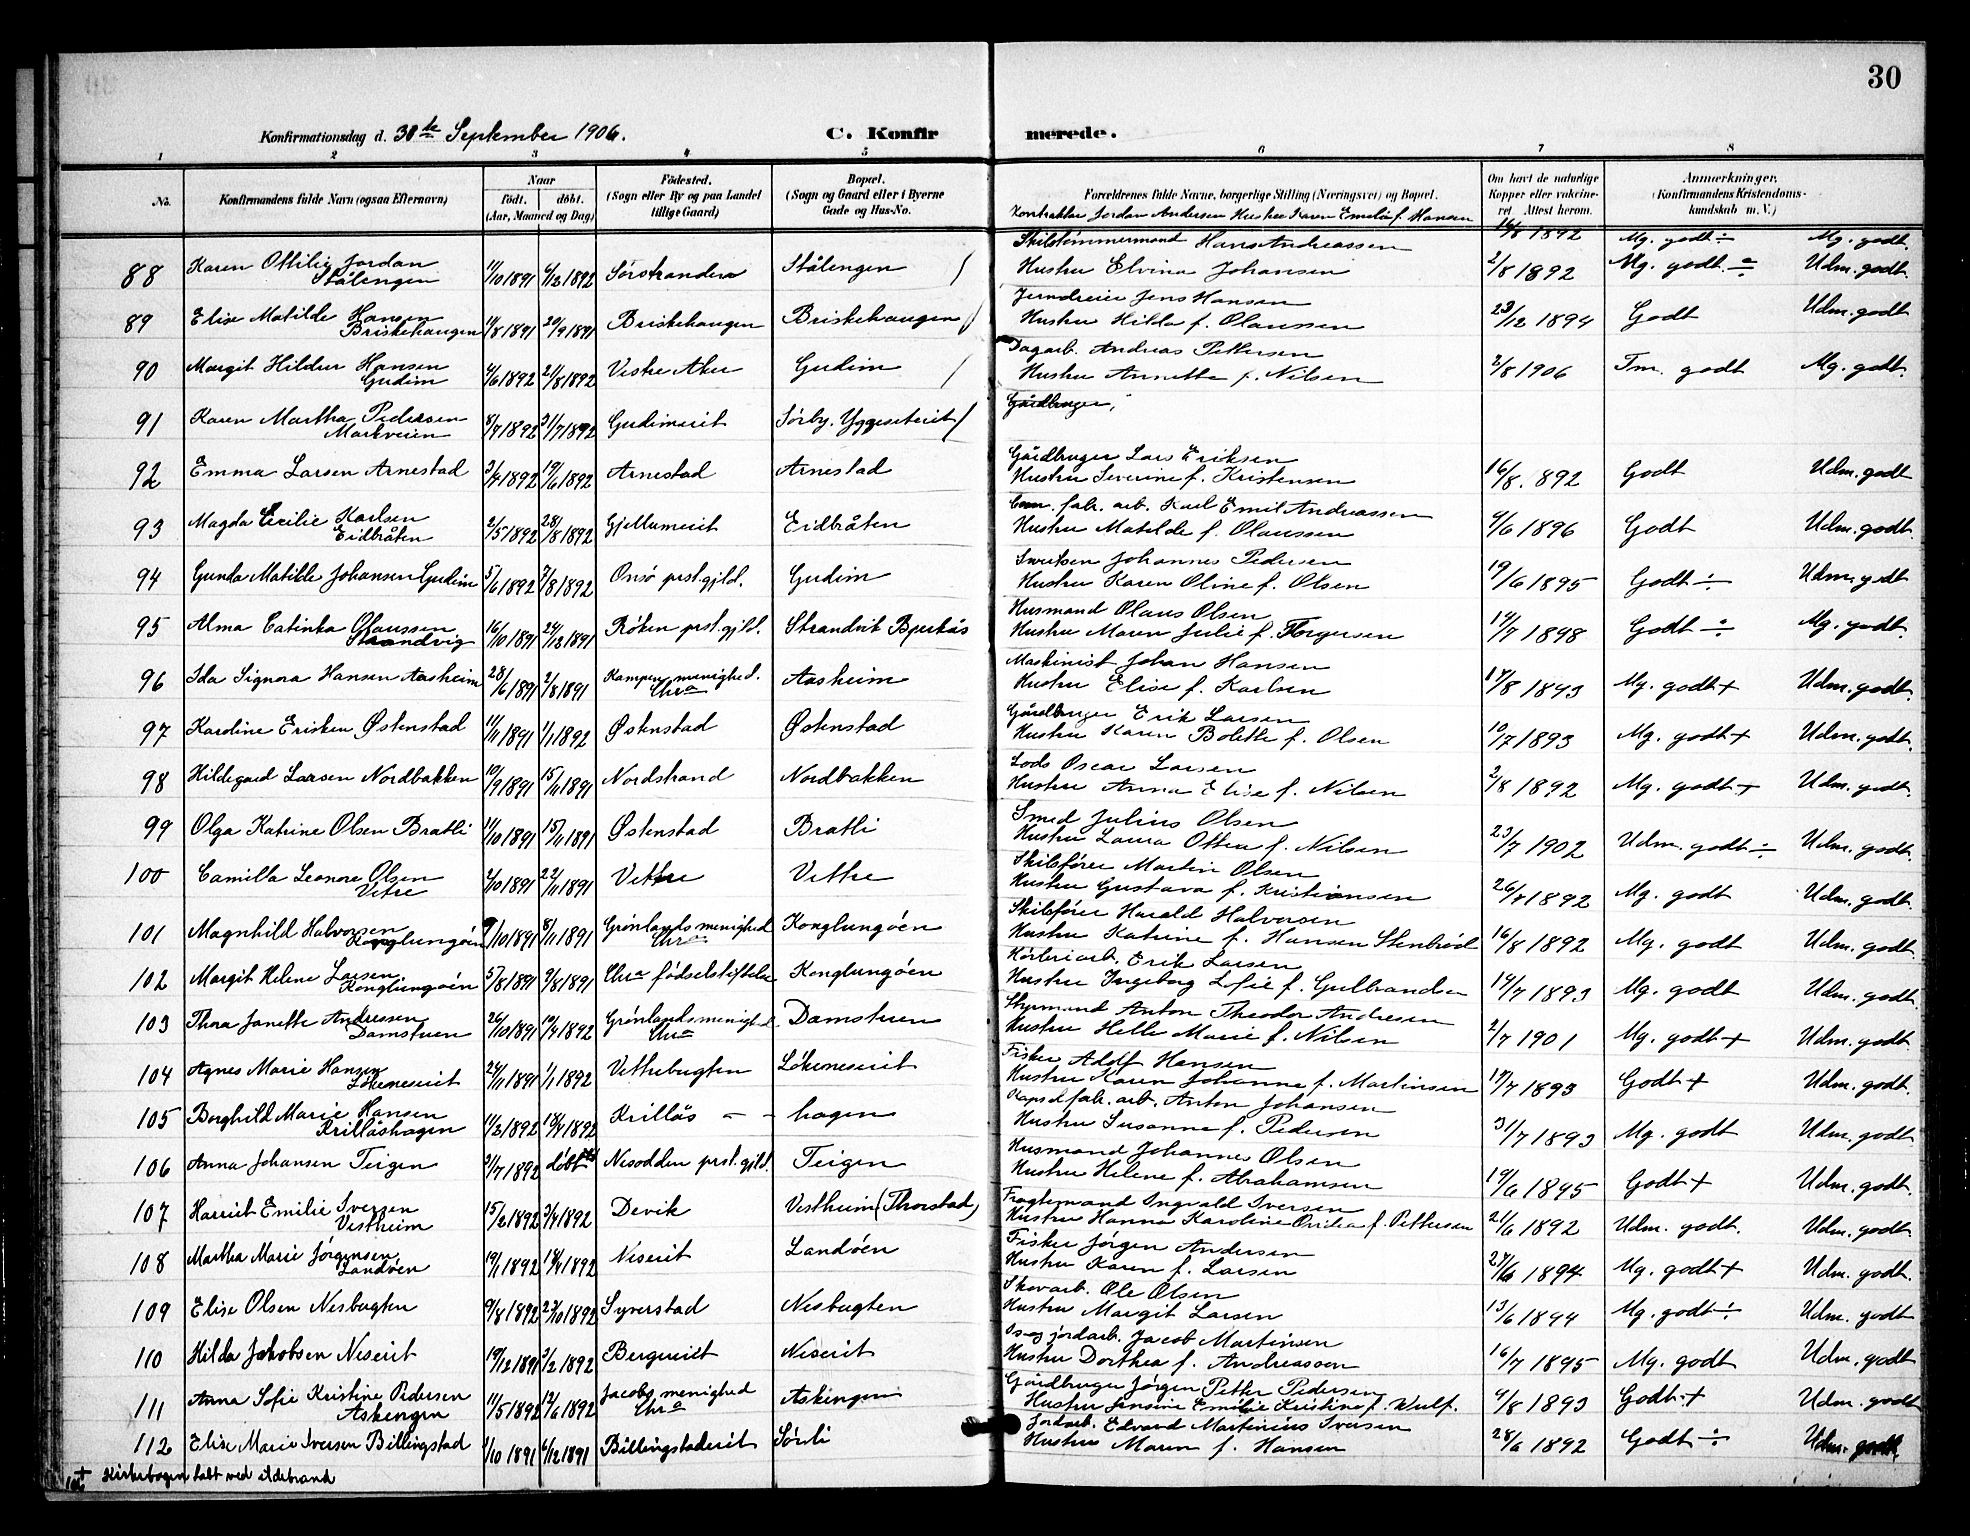 30
Konfirmationsdag d. 30te September 1906. C. Konfir merede.
1 2 3 4 5 6 7 8
No. Konfirmandens fulde Navn (ogsaa Efternavn) Naar født. døbt. (Aar, Maaned og Dag) Fødested. (Sogn eller By og paa Landet tillige Gaard) Bopæl. (Sogn og Gaard eller i Byerne Gade og Hus-No. Forældrenes fulde Navne, borgerlige Stilling (Næringsvei) og Bopæl. Om havt de naturlige Kopper eller vakcineret. Attest herom. Anmærkninger. (Konfirmandens Kristendomskundskab m. V.)
Kontraktør Jordan Andersen Hustru Karen Emelie f. Hansen 16/8 1892 Mg. godt ÷ Mg. godt.
88 Karen Ottilie Jordan Stålengen 11/10 1891 6/12 1892 Sørstranden Stålengen /
Skibstømmermand Hans Andreassen
Hustru Elvina Johansen 2/8 1892 Mg. godt ÷ Udm. godt
89 Elise Matilde Hansen Briskehaugen 11/8 1891 20/9 1891 Briskehaugen Briskehaugen /
Jerndreier Jens Hansen
Hustru Hilda f. Olaussen 23/12 1894 Godt Udm. godt
90 Margit Hildur Hansen Gudim 4/6 1892 21/8 1892 Vestre Aker Gudim /
Dagarb. Andreas Pettersen
Hustru Annette f. Nilsen 2/8 1906 Tm. godt Mg. godt.
91 Karen Martha Pedersen Markveien 8/4 1892 31/7 1892 Gudimeiet Sørby. Yggeseteiet /
Gårdbruger,
92 Emma Larsen Arnestad 3/4 1892 19/6 1892 Arnestad Arnestad
Gårdbruger Lars Eriksen
Hustru Severine f. Kristensen 16/8. 892 Godt Udm. godt
93 Magda Cecilie Karlsen Eidbråten 2/5 1892 28/8 1892 Gjellumeiet Eidbråten
Cem. fabr. arb. Karl Emil Andreassen
Hustru Matilde f. Olaussen 9/6 1896 Godt Udm. godt.
94 Gunda Matilde Johansen Gudim 5/6 1892 7/8 1892 Onsø prst.gjld. Gudim
Sveitser Johannes Pedersen
Hustru Karen Oline f. Olsen 19/6 1895 Godt ÷ Udm. godt
95 Alma Catinka Olaussen Strandvig 16/10 1891 24/12 1891 Røken prst.gjld. Strandvik Bjerkås
Husmand Olaus Olsen
Hustru Maren Julie f. Torgersen 14/7 1898 Godt ÷ Mg. godt.
96 Ida Signora Hansen Aasheim 28/6 1891 2/8 1891 Kampen menighed. Chra Aasheim
Maskinist Johan Hansen
Hustru Elise f. Karlsen 17/8 1893 Mg. godt + Udm. godt.
97 Karoline Eriksen Østenstad 11/11 1891 1/1 1892 Østenstad Østenstad
Gårdbruger Erik Larsen
Hustru Karen Bolette f. Olsen 10/7 1893 Mg. godt + Udm. godt.
98 Hildegard Larsen Nordbakken 10/9 1891 15/11 1891 Nordstrand Nordbakken
Lods Oscar Larsen
Hustru Anna Elise f. Nilsen 2/8 1892 Mg. godt + Udm. godt.
99 Olga Katrine Olsen Bratli 11/10 1891 15/11 1891 Østenstad Bratli
Smed Julius Olsen
Hustru Laura Ottea f. Nilsen 23/7 1902 Udm. godt ÷ Udm. godt.
100 Camilla Leonore Olsen Vetre 2/10 1891 22/11 1891 Vettre Vettre
Skibsfører Martin Olsen
Hustru Gustava f. Kristiansen 26/7 1892 Mg. godt Udm. godt.
101 Magnhild Halvorsen Konglungøen 9/10 1891 8/11 1891 Grønlands menighed Chra Konglungøen
Skibsfører Harald Halvorsen
Hustru Katrine f. Hansen Stenbrød 16/8 1892 Mg. godt Udm. godt.
102 Margit Helene Larsen Konglungøen 5/8 1891 9/8 1891 Chra fødselstiftelse Konglungøen
Erik Larsen
Hustru Ingeborg Sofie f. Gulbrandsen 14/7 1893 Mg. godt Udm. godt.
103 Thora Janette Andressen Damstuen 26/10 1891 10/4 1892 Grønlands menighed Chra Damstuen
Styrmand Anton Theodor Andresen
Hustru Helle Marie f. Nilsen 2/7 1901 Mg. godt + Udm. godt
104 Agnes Marie Hansen Løkeneseiet 24/11 1891 1/1 1892 Vettrebugten Løkeneseiet
Fisker Adolf Hansen
Hustru Karen Johanne f. Martinsen 17/7 1893 Godt + Udm. godt.
105 Borghild Marie Hansen Krillåshagen 11/2 1892 18/4 1892 Krillås — - hagen
Kapselfabr. arb. Anton Johansen
Hustru Susanne f. Pedersen 31/7 1893 Mg. godt Udm. godt.
106 Anna Johansen Teigen 3/7 1892 døbt Nesodden prst.gjld. Teigen
Husmand Johannes Olsen
Hustru Helene f. Abrahamsen 19/6 1895 Godt + Udm. godt.
107 Harriet Emilie Iversen Vestheim 15/2 1892 3/4 1892 Devik Vestheim (Thorstad)
Fragtemand Ingvald Iversen
Hustru Hanna Karoline f. Pettersen 21/6 1892 Udm. godt. Udm. godt.
108 Martha Marie Jørgensen Landøen 19/1 1892 18/4 1892 Neseiet Landøen
Fisker Jørgen Andersen
Hustru Karen f. Larsen 27/6 1894 Mg. godt + Udm. godt.
109 Elise Olsen Nesbugten 9/8 1892 23/10 1892 Syverstad Nesbugten
Skovarb. Ole Olsen
Hustru Margit Larsen 13/6 1894 Mg. godt ÷ Udm. godt
110 Hilda Jakobsen Neseiet 19/12 1891 2/2 1892 Bergereiet Neseiet
Is og jordarb. Jacob Martinsen
Hustru Dorthea f. Andreassen 16/7 1895 Mg. godt Udm. godt
111 Anna Sofie Kristine Pedersen Askengen 11/5 1892 12/6 1892 Jacobs menighed Chra Askengen
Gårdbruger Jørgen Petter Pedersen
Hustru Jensine Emilie Kristine f. Wulf. 4/8 1893 Godt + Udm. godt
112 Elise Marie Iversen Billingstad 1/10 1891 6/12 1891 Billingstadeiet Sørli
Jordarb. Edvard Martinius Iversen
Hustru Maren f. Hansen 28/6 1892 Godt ÷ Udm. godt.
106 + Kirkebogen tabt ved ildebrand